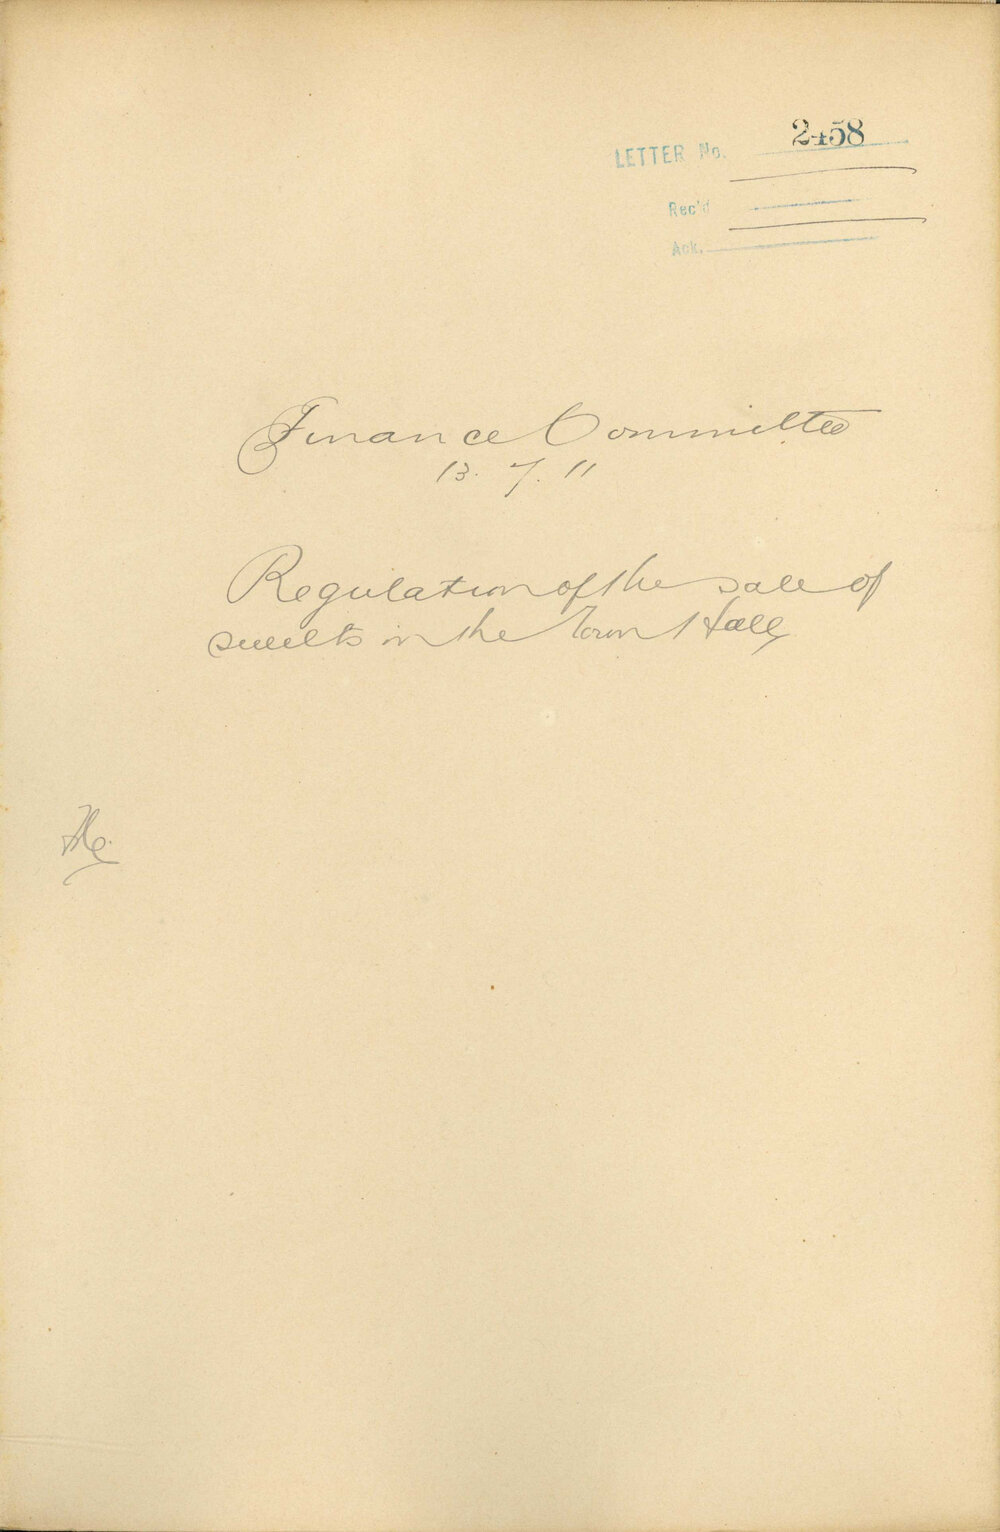 LETTER No. 2458
Rec'd
Ack.
Finance Committee
13. 7. 11
Regulation of the sale of
sweets in the Town Hall